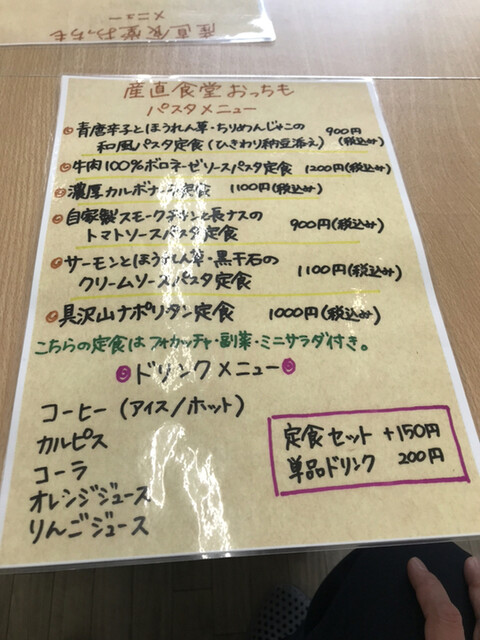 産直食堂おっちも
メニュー
産直食堂おっちも
パスタメニュー
青唐辛子とほうれん草・ちりめんじゃこの
和風パスタ定食(ひきわり納豆添え) 900円(税込み)
牛肉100%ボロネーゼソースパスタ定食 1200円(税込み)
濃厚カルボナーラ定食 1100円(税込み)
自家製スモークチキンと長ナスの
トマトソースパスタ定食 900円(税込み)
サーモンとほうれん草・黒千石の
クリームソースパスタ定食 1100円(税込み)
具沢山ナポリタン定食 1000円(税込み)
こちらの定食はフォカッチャ・副菜・ミニサラダ付き。
ドリンクメニュー
コーヒー(アイス/ホット)
カルピス
コーラ
オレンジジュース
りんごジュース
定食セット +150円
単品ドリンク 200円